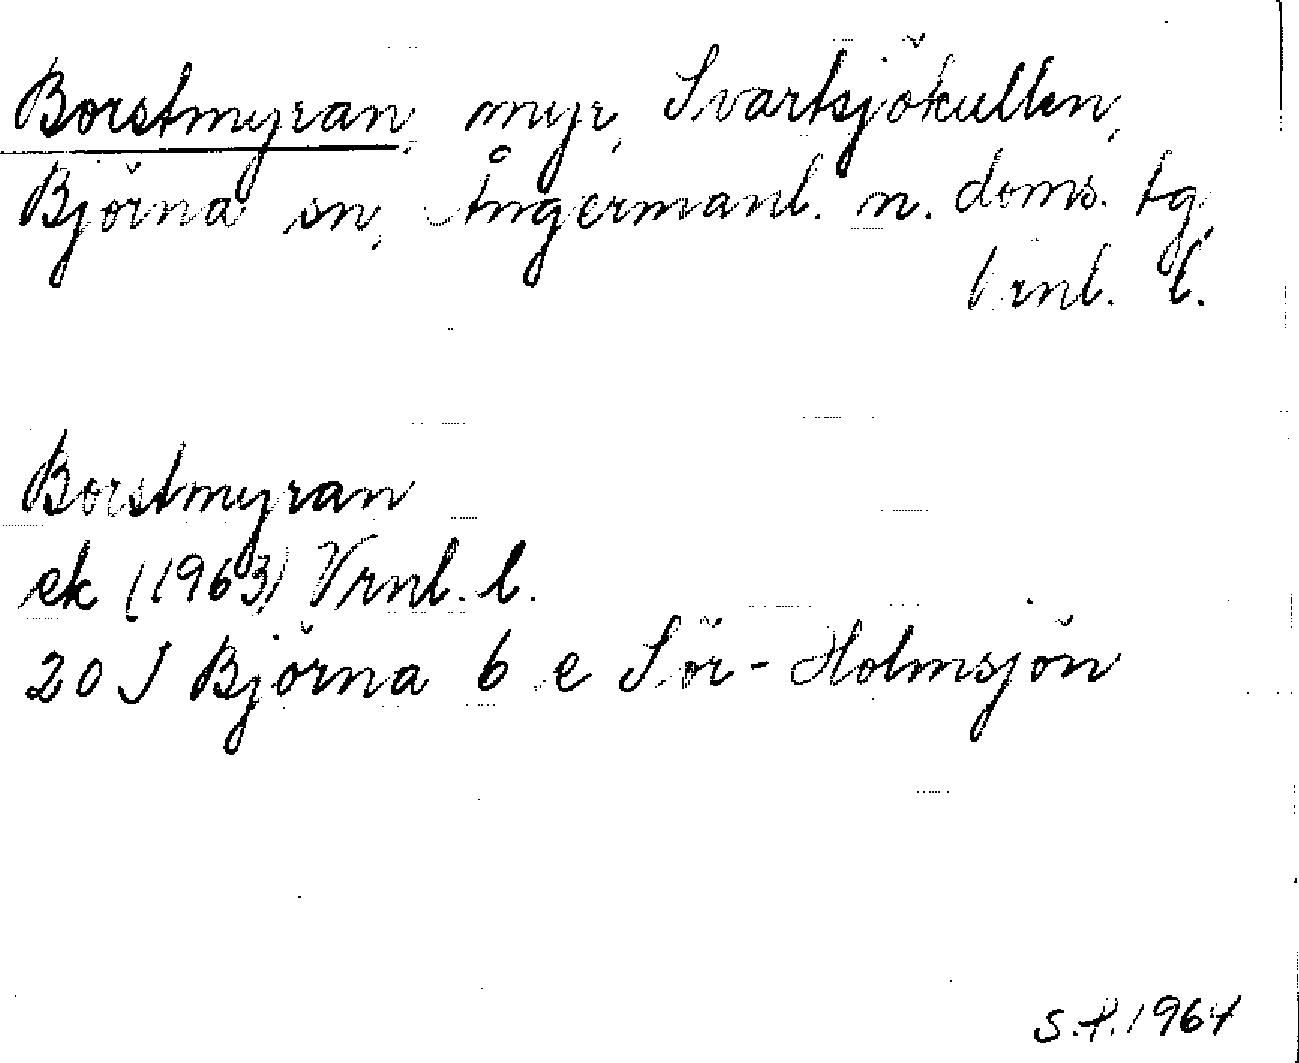 Borstmyran, myr, Svartsjökullen,
Björna sn, Ångermanl. n. doms. tg,
Vrnl. l.
Borstmyran
ek (1963) Vrnl. l.
20 J Björna 6 e Sör-Holmsjön
S.P. 1964